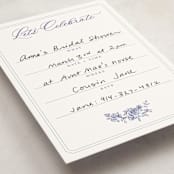 Let's Celebrate
Anna's Bridal Shower
WHAT
March 3rd at 2pm
DATE & TIME
at Aunt Mae's house
WHERE
Cousin Jane
HOST
Jane: 919-367-4812